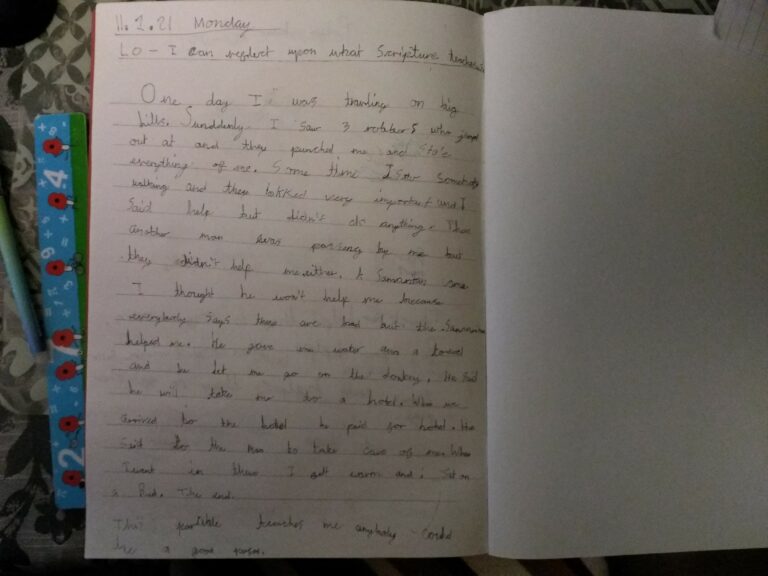 11.1.21 Monday
LO - I can reflect upon what Scripture teaches
One day I was on big
hills. Sunddenly I saw 3 robbers who jumped
out at and they punched me and stole
everything of me. Some time I saw somebody
walking and there lookked very important and I
Said help but didn't do anything. Then
another man was passing by me but
they didn't help me either. A Samaritan came
I thought he won't help me because
everybody says there are bad but the Samaritan
helped me. He gave me water and a towel
and he let me go on the donkey. He said
he will take me to a hotel. When we
arrived to the hotel he paid for hotel. He
Said to the man to take care of me. When
I went in there I got warm and i sat on
a Bed. The end.
This parible teaches me anybody could
be a good person.
4
2